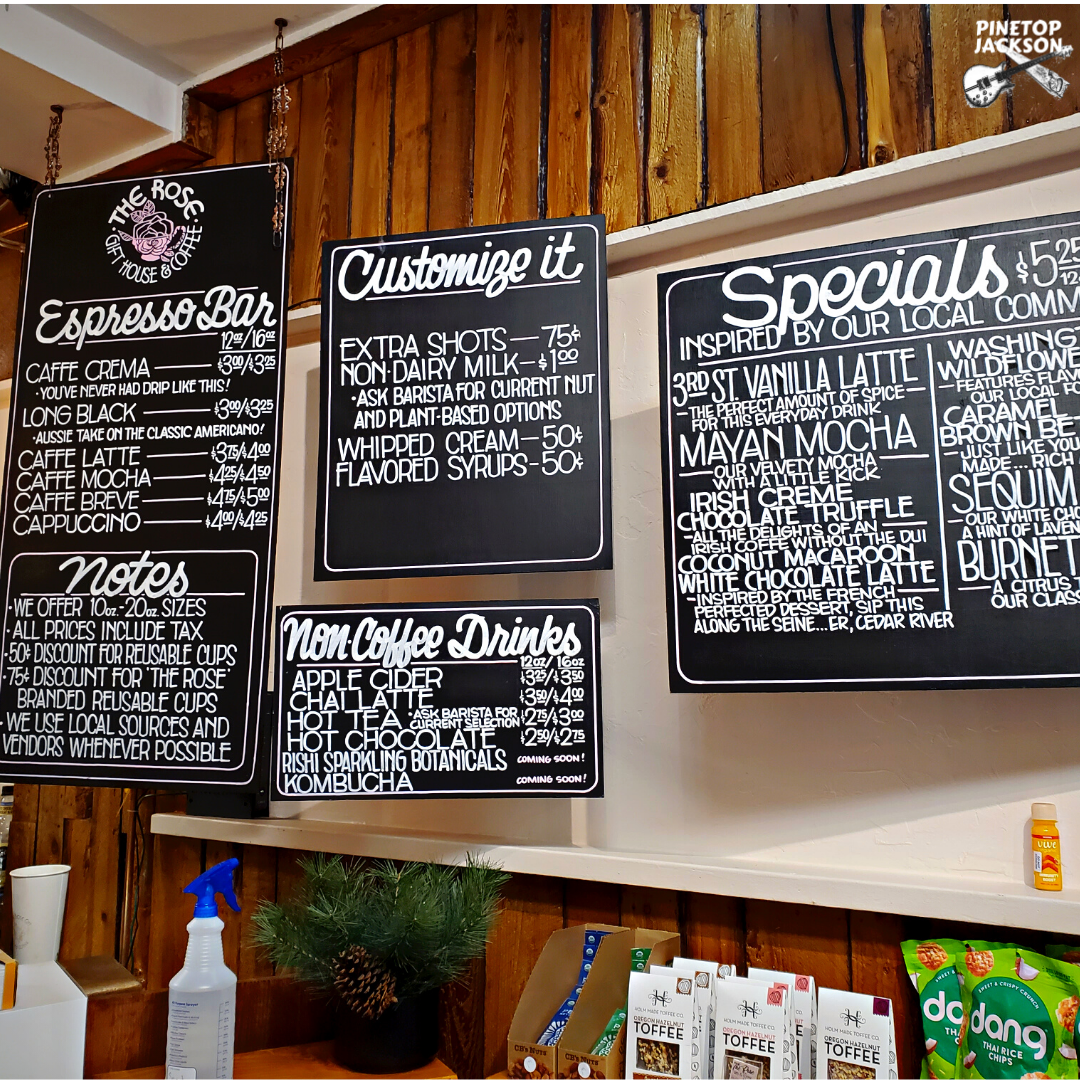 PINETOP
JACKSON
THE ROSE
GIFT HOUSE & COFFEE
Espresso Bar
12oz/16oz
CAFFE CREMA — $3.00/$3.25
• YOU'VE NEVER HAD DRIP LIKE THIS!
LONG BLACK — $3.00/$3.25
• AUSSIE TAKE ON THE CLASSIC AMERICANO!
CAFFE LATTE — $3.75/$4.00
CAFFE MOCHA — $4.25/$4.50
CAFFE BREVE — $4.75/$5.00
CAPPUCCINO — $4.00/$4.25
Notes
• WE OFFER 10oz.-20oz. SIZES
• ALL PRICES INCLUDE TAX
• 50¢ DISCOUNT FOR REUSABLE CUPS
• 75¢ DISCOUNT FOR "THE ROSE"
BRANDED REUSABLE CUPS
• WE USE LOCAL SOURCES AND
VENDORS WHENEVER POSSIBLE
Customize it
EXTRA SHOTS — 75¢
NON-DAIRY MILK — $1.00
• ASK BARISTA FOR CURRENT NUT
AND PLANT-BASED OPTIONS
WHIPPED CREAM — 50¢
FLAVORED SYRUPS - 50¢
Non-Coffee Drinks
12oz/16oz
APPLE CIDER $3.25/$3.50
CHAI LATTE $3.50/$4.00
HOT TEA • ASK BARISTA FOR CURRENT SELECTION $2.75/$3.00
HOT CHOCOLATE $2.50/$2.75
RISHI SPARKLING BOTANICALS COMING SOON!
KOMBUCHA COMING SOON!
Specials $5.25
12
INSPIRED BY OUR LOCAL COMM
3RD ST. VANILLA LATTE
— THE PERFECT AMOUNT OF SPICE —
FOR THIS EVERYDAY DRINK
MAYAN MOCHA
— OUR VELVETY MOCHA —
WITH A LITTLE KICK
IRISH CREME
CHOCOLATE TRUFFLE
— ALL THE DELIGHTS OF AN —
IRISH COFFE WITHOUT THE DUI
COCONUT MACAROON
WHITE CHOCOLATE LATTE
— INSPIRED BY THE FRENCH —
PERFECTED DESSERT, SIP THIS
ALONG THE SEINE...ER, CEDAR RIVER
WASHINGT
WILDFLOWE
— FEATURES FLAV
OUR LOCAL FO
CARAMEL
BROWN BE
— JUST LIKE YOU
MADE... RICH
SEQUIM
— OUR WHITE CHO
A HINT OF LAVEN
BURNET
A CITRUS T
OUR CLASS
vive
CB's NUTS
CB's NUTS
HOLM MADE TOFFEE CO.
OREGON HAZELNUT
TOFFEE
HOLM MADE TOFFEE CO.
OREGON HAZELNUT
TOFFEE
HOLM MADE TOFFEE CO.
OREGON HAZELNUT
TOFFEE
dang
SWEET & CRISPY CRUNCH
dang
THAI RICE
CHIPS